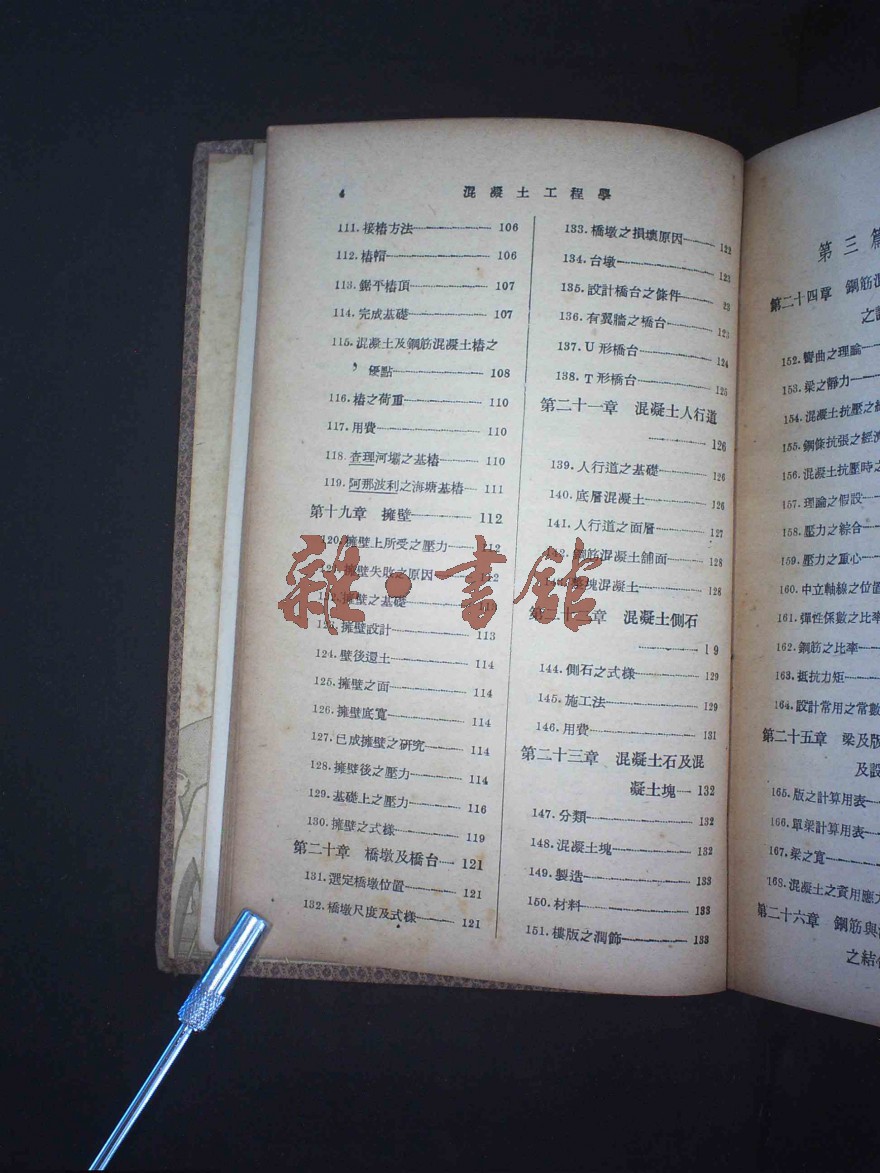 4
混凝土工程學
111. 接樁方法 106
112. 樁帽 106
113. 鋸平樁頂 107
114. 完成基礎 107
115. 混凝土及鋼筋混凝土樁之
優點 108
116. 樁之荷重 110
117. 用費 110
118. 查理河壩之基樁 110
119. 阿那波利之海塘基樁 111
第十九章 擁壁 112
120. 擁壁上所受之壓力 112
擁壁失敗之原因 112
擁壁之基礎
123. 擁壁設計 113
124. 壁後還土 114
125. 擁壁之面 114
126. 擁壁底寬 114
127. 已成擁壁之研究 114
128. 擁壁後之壓力 114
129. 基礎上之壓力 116
130. 擁壁之式樣 119
第二十章 橋墩及橋台 121
131. 選定橋墩位置 121
132. 橋墩尺度及式樣 121
133. 橋墩之損壞原因 122
134. 台墩 123
135. 設計橋台之條件 23
136. 有翼牆之橋台 123
137. U形橋台 124
138. T形橋台 125
第二十一章 混凝土人行道
126
139. 人行道之基礎 126
140. 底層混凝土 126
141. 人行道之面層 127
鋼筋混凝土舖面 128
塊混凝土 128
第二十二章 混凝土側石
1 9
144. 側石之式樣 129
145. 施工法 129
146. 用費 131
第二十三章 混凝土石及混
凝土塊 132
147. 分類 132
148. 混凝土塊 132
149. 製造 133
150. 材料 133
151. 樓版之潤飾 133
第三篇
第二十四章 鋼筋混
之
152. 彎曲之理論
153. 梁之靜力
154. 混凝土抗壓之
155. 鋼條抗張之經
156. 混凝土抗壓時之
157. 理論之假設
158. 壓力之綜合
159. 壓力之重心
160. 中立軸線之位置
161. 彈性係數之比率
162. 鋼筋之比率
163. 抵抗力矩
164. 設計常用之常數
第二十五章 梁及版
及設
165. 版之計算用表
166. 單梁計算用表
167. 梁之寬
168. 混凝土之實用應力
第二十六章 鋼筋與
之結
雜·書館